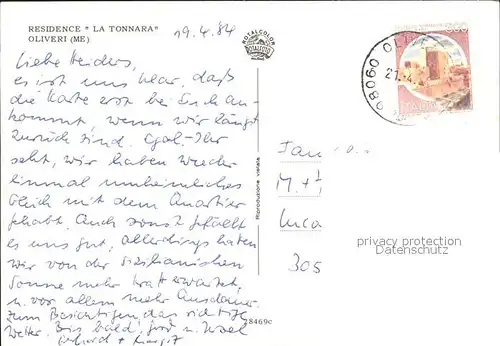 RESIDENCE " LA TONNARA"
OLIVERI (ME)
19.4.84
ROTALCOLOR
ROTALFOTO
MILANO
98060 OLIV
21.4.
Liebe Heiders,
es ist uns klar, daß
die Karte erst bei Euch an-
kommt, wenn wir längst
zurück sind. Egal - Ihr
seht, wir haben wieder
einmal unheimliches
Glück mit dem Quartier
gehabt. Auch sonst gefällt
es uns gut, allerdings hatten
wir von der sizilianischen
Sonne mehr Kraft erwartet,
u. vor allem mehr Ausdauer.
Zum Besichtigen das richtige
Wetter. Bis bald!
Gerhard + Margit
Riproduzione vietata
Fam
M. + H
Luca
305
privacy protection
Datenschutz
8469c